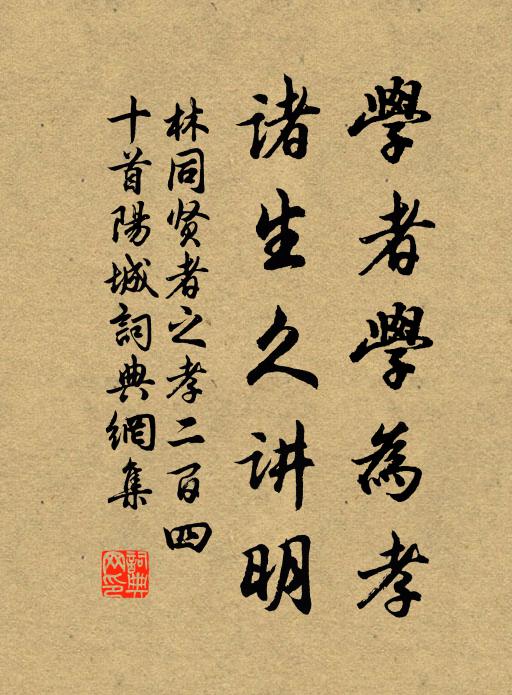 學者學為孝
諸生久讲明
林同贤者之孝二百四
十首陽城詞典網集
詞典网印